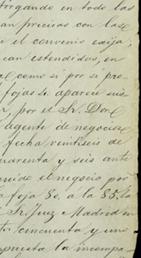 trogando en todo las
an precisas con las
e el convenio exija,
can estendidos, en
al como si por si pro
fojas de aparece
, por el Sr. Don
agente de negocios
fecha veintiseis de
uarenta y seis ante
el negocio por
la foja 50, á la 55, la
Sr. Juez Madrid
cincuenta y uno
puesta la incompa